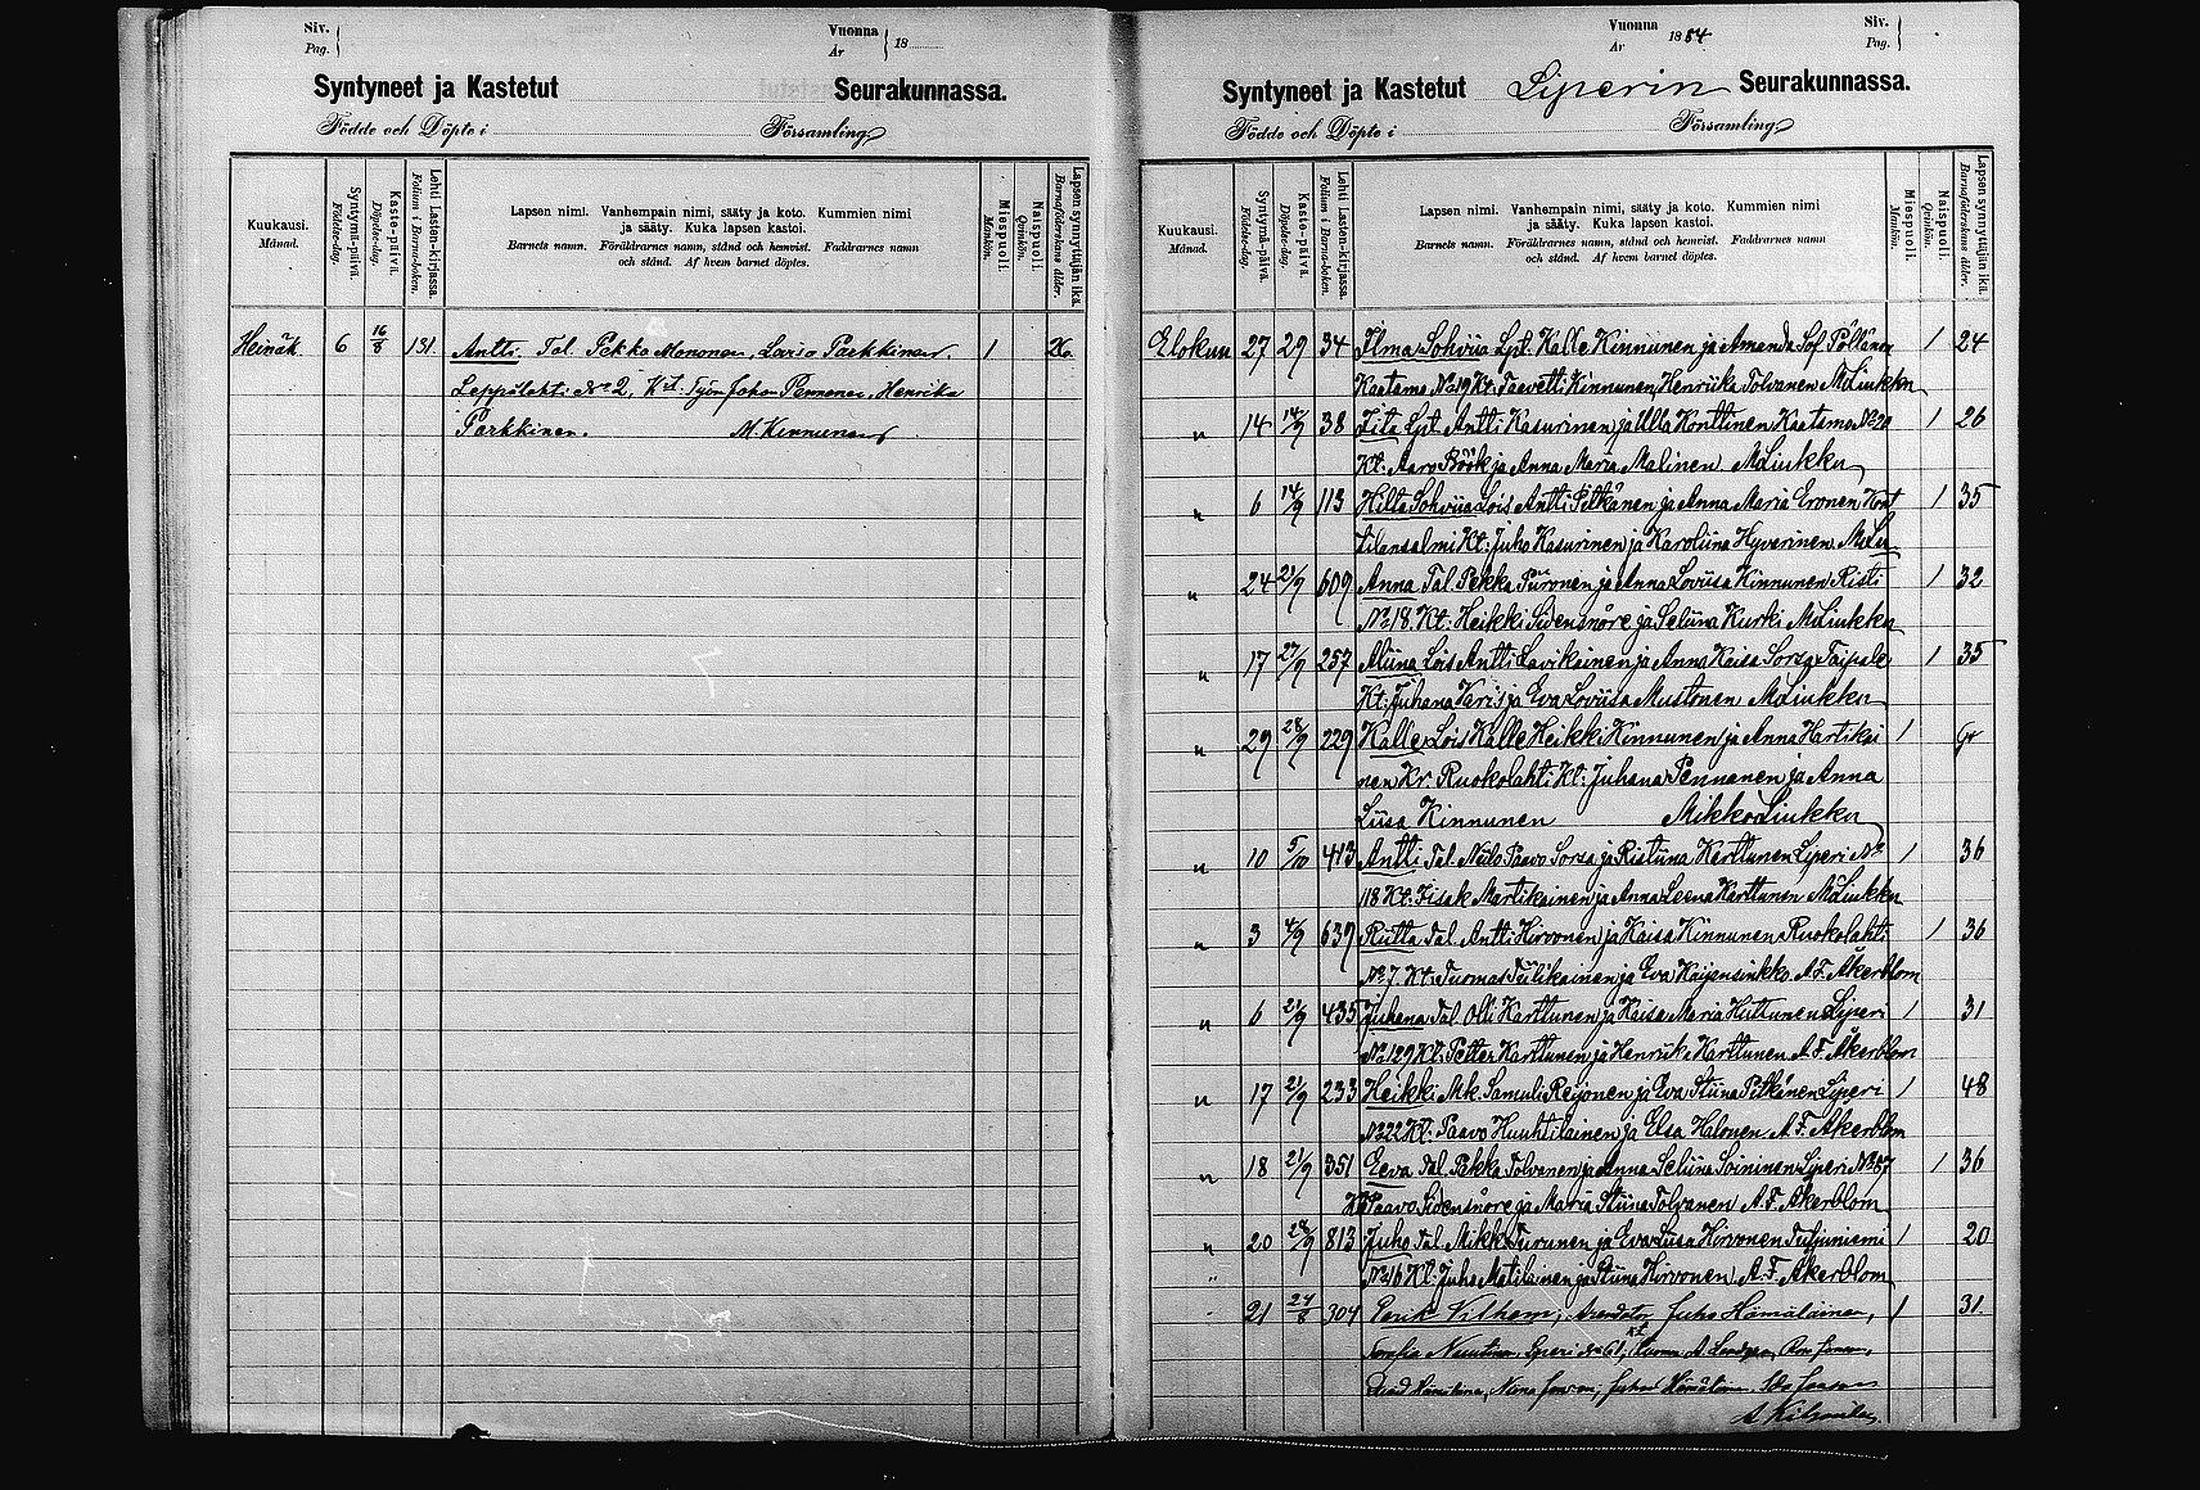 Siv.
Pag.
Vuonna
År
18
Syntyneet ja Kastetut Seurakunnassa.
Födde och Döpte i Församling
Kuukausi.
Månad.
Syntymä-päivä.
Födelse-dag.
Kaste-päivä.
Döpelse-dag.
Lehti Lasten-kirjassa.
Folium i Barna-boken.
Lapsen nimi. Vanhempain nimi, sääty ja koto. Kummien nimi
ja sääty. Kuka lapsen kastoi.
Barnets namn. Föräldrarnes namn, stånd och hemvist. Faddrarnes namn
och stånd. Af hvem barnet döptes.
Miespuoli.
Mankön.
Naispuoli.
Qvinkön.
Lapsen synnyttäjän ikä.
Barnaföderskans ålder.
Heinäk. 6 16/8 131 Antti. Tal. Pekka Mononen, Lovisa Parkkinen. 1 26
Leppälahti No 2, Kt. Työm Johan Pennanen, Henrika
Parkkinen. M. Kinnunen
Vuonna
År
1884
Siv.
Pag.
Syntyneet ja Kastetut Liperin Seurakunnassa.
Födde och Döpte i Församling
Kuukausi.
Månad.
Syntymä-päivä.
Födelse-dag.
Kaste-päivä.
Döpelse-dag.
Lehti Lasten-kirjassa.
Folium i Barna-boken.
Lapsen nimi. Vanhempain nimi, sääty ja koto. Kummien nimi
ja sääty. Kuka lapsen kastoi.
Barnets namn. Föräldrarnes namn, stånd och hemvist. Faddrarnes namn
och stånd. Af hvem barnet döptes.
Miespuoli.
Mankön.
Naispuoli.
Qvinkön.
Lapsen synnyttäjän ikä.
Barnaföderskans ålder.
Elokuu 27 29 34 Ilma Sohviia Lpt. Kalle Kinnunen ja Amanda Sof. Pöllänen 1 24
Kaatamo No 19 Kt. Taavetti Kinnunen, Henriika Tolvanen M Liukku
" 14 14/9 38 Iita Lpt. Antti Kasurinen ja Ulla Konttinen Kaatamo No 20 1 26
Kt: Aaro Böök ja Anna Maria Malinen M Liukku
" 6 14/9 113 Hilta Sohviia Lois Antti Pitkänen ja Anna Maria Eronen Kont 1 35
tilansalmi Kt: Juho Kasurinen ja Karoliina Hyverinen M Lu
" 24 21/9 609 Anna Tal. Pekka Piironen ja Anna Loviisa Kinnunen Risti 1 32
No 18. Kt: Heikki Sidensnöre ja Seliina Kurki M Liukku
" 17 27/9 257 Aliina Lois Antti Lavikainen ja Anna Kaisa Sorsa Taipale 1 35
Kt: Juhana Varis ja Eva Loviisa Mustonen M Liukku
" 29 28/9 229 Kalle Lois Kalle Heikki Kinnunen ja Anna Hartikai 1
nen Kr. Ruokolahti Kt: Juhana Pennanen ja Anna
Liisa Kinnunen Mikko Liukku
" 10 5/10 413 Antti Tal. Niilo Paavo Sorsa ja Ristiina Karttunen Liperi No 1 36
118 Kt: Iisak Martikainen ja Anna Leena Karttunen M Liukku
" 3 4/9 639 Riitta Tal. Antti Hirvonen ja Kaisa Kinnunen Ruokolahti 1 36
No 7. Kt. Tuomas Tiilikainen ja Eva Kaijansinkko A. F. Åkerblom
" 6 21/9 435 Juhana Tal. Olli Karttunen ja Kaisa Maria Huttunen Liperi 1 31
No 129 Kt: Petter Karttunen ja Henriika Karttunen A. F. Åkerblom
" 17 21/9 233 Heikki Mk. Samuli Reijonen ja Eva Stiina Pitkänen Liperi 1 48
No 22 Kt: Paavo Huuhtilainen ja Elsa Halonen A. F. Akerblom
" 18 21/9 351 Eeva Tal. Pekka Tolvanen ja Anna Seliina Soininen Liperi No 87 1 36
Kt Paavo Sidensnöre ja Maria Stiina Tolvanen A. F. Akerblom
" 20 28/9 813 Juho Tal. Mikk. Turunen ja Eva Liisa Hirvonen Tutjuniemi 1 20
" No 16 Kt: Juho Matilainen ja Stiina Hirvonen A. F. Akerblom
21 24/8 304 Eerik Vilhem; Arendator Juho Hämäläinen, 1 31
Nuutinen, Liperi No 61,
Hämäläinen